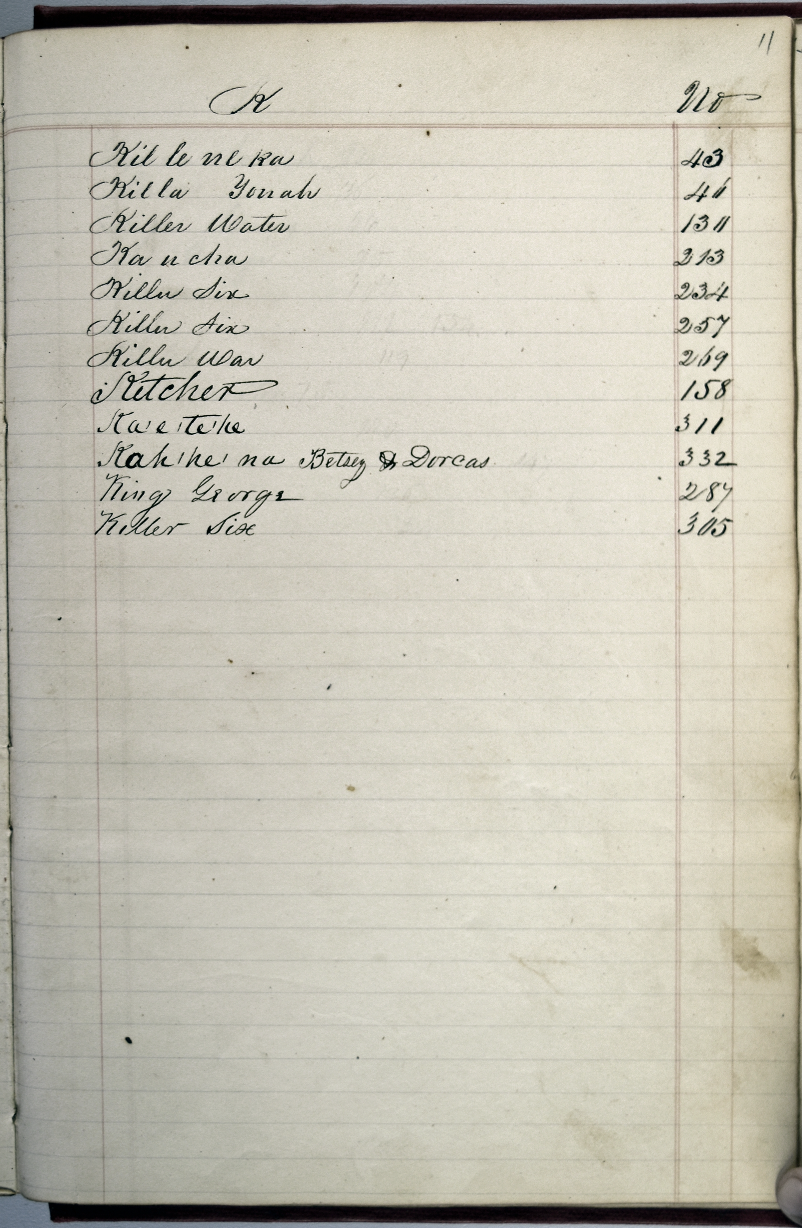 11
K No
Kil le ne ka 43
Killa Yonah 41
Killer Water 131
Ka u cha 213
Killer Six 234
Killer Six 257
Killer War 269
Ketcher 158
Ka'e'te'he 311
Kah'he'na Betsey & Dorcas 332
King George 287
Killer Six 305